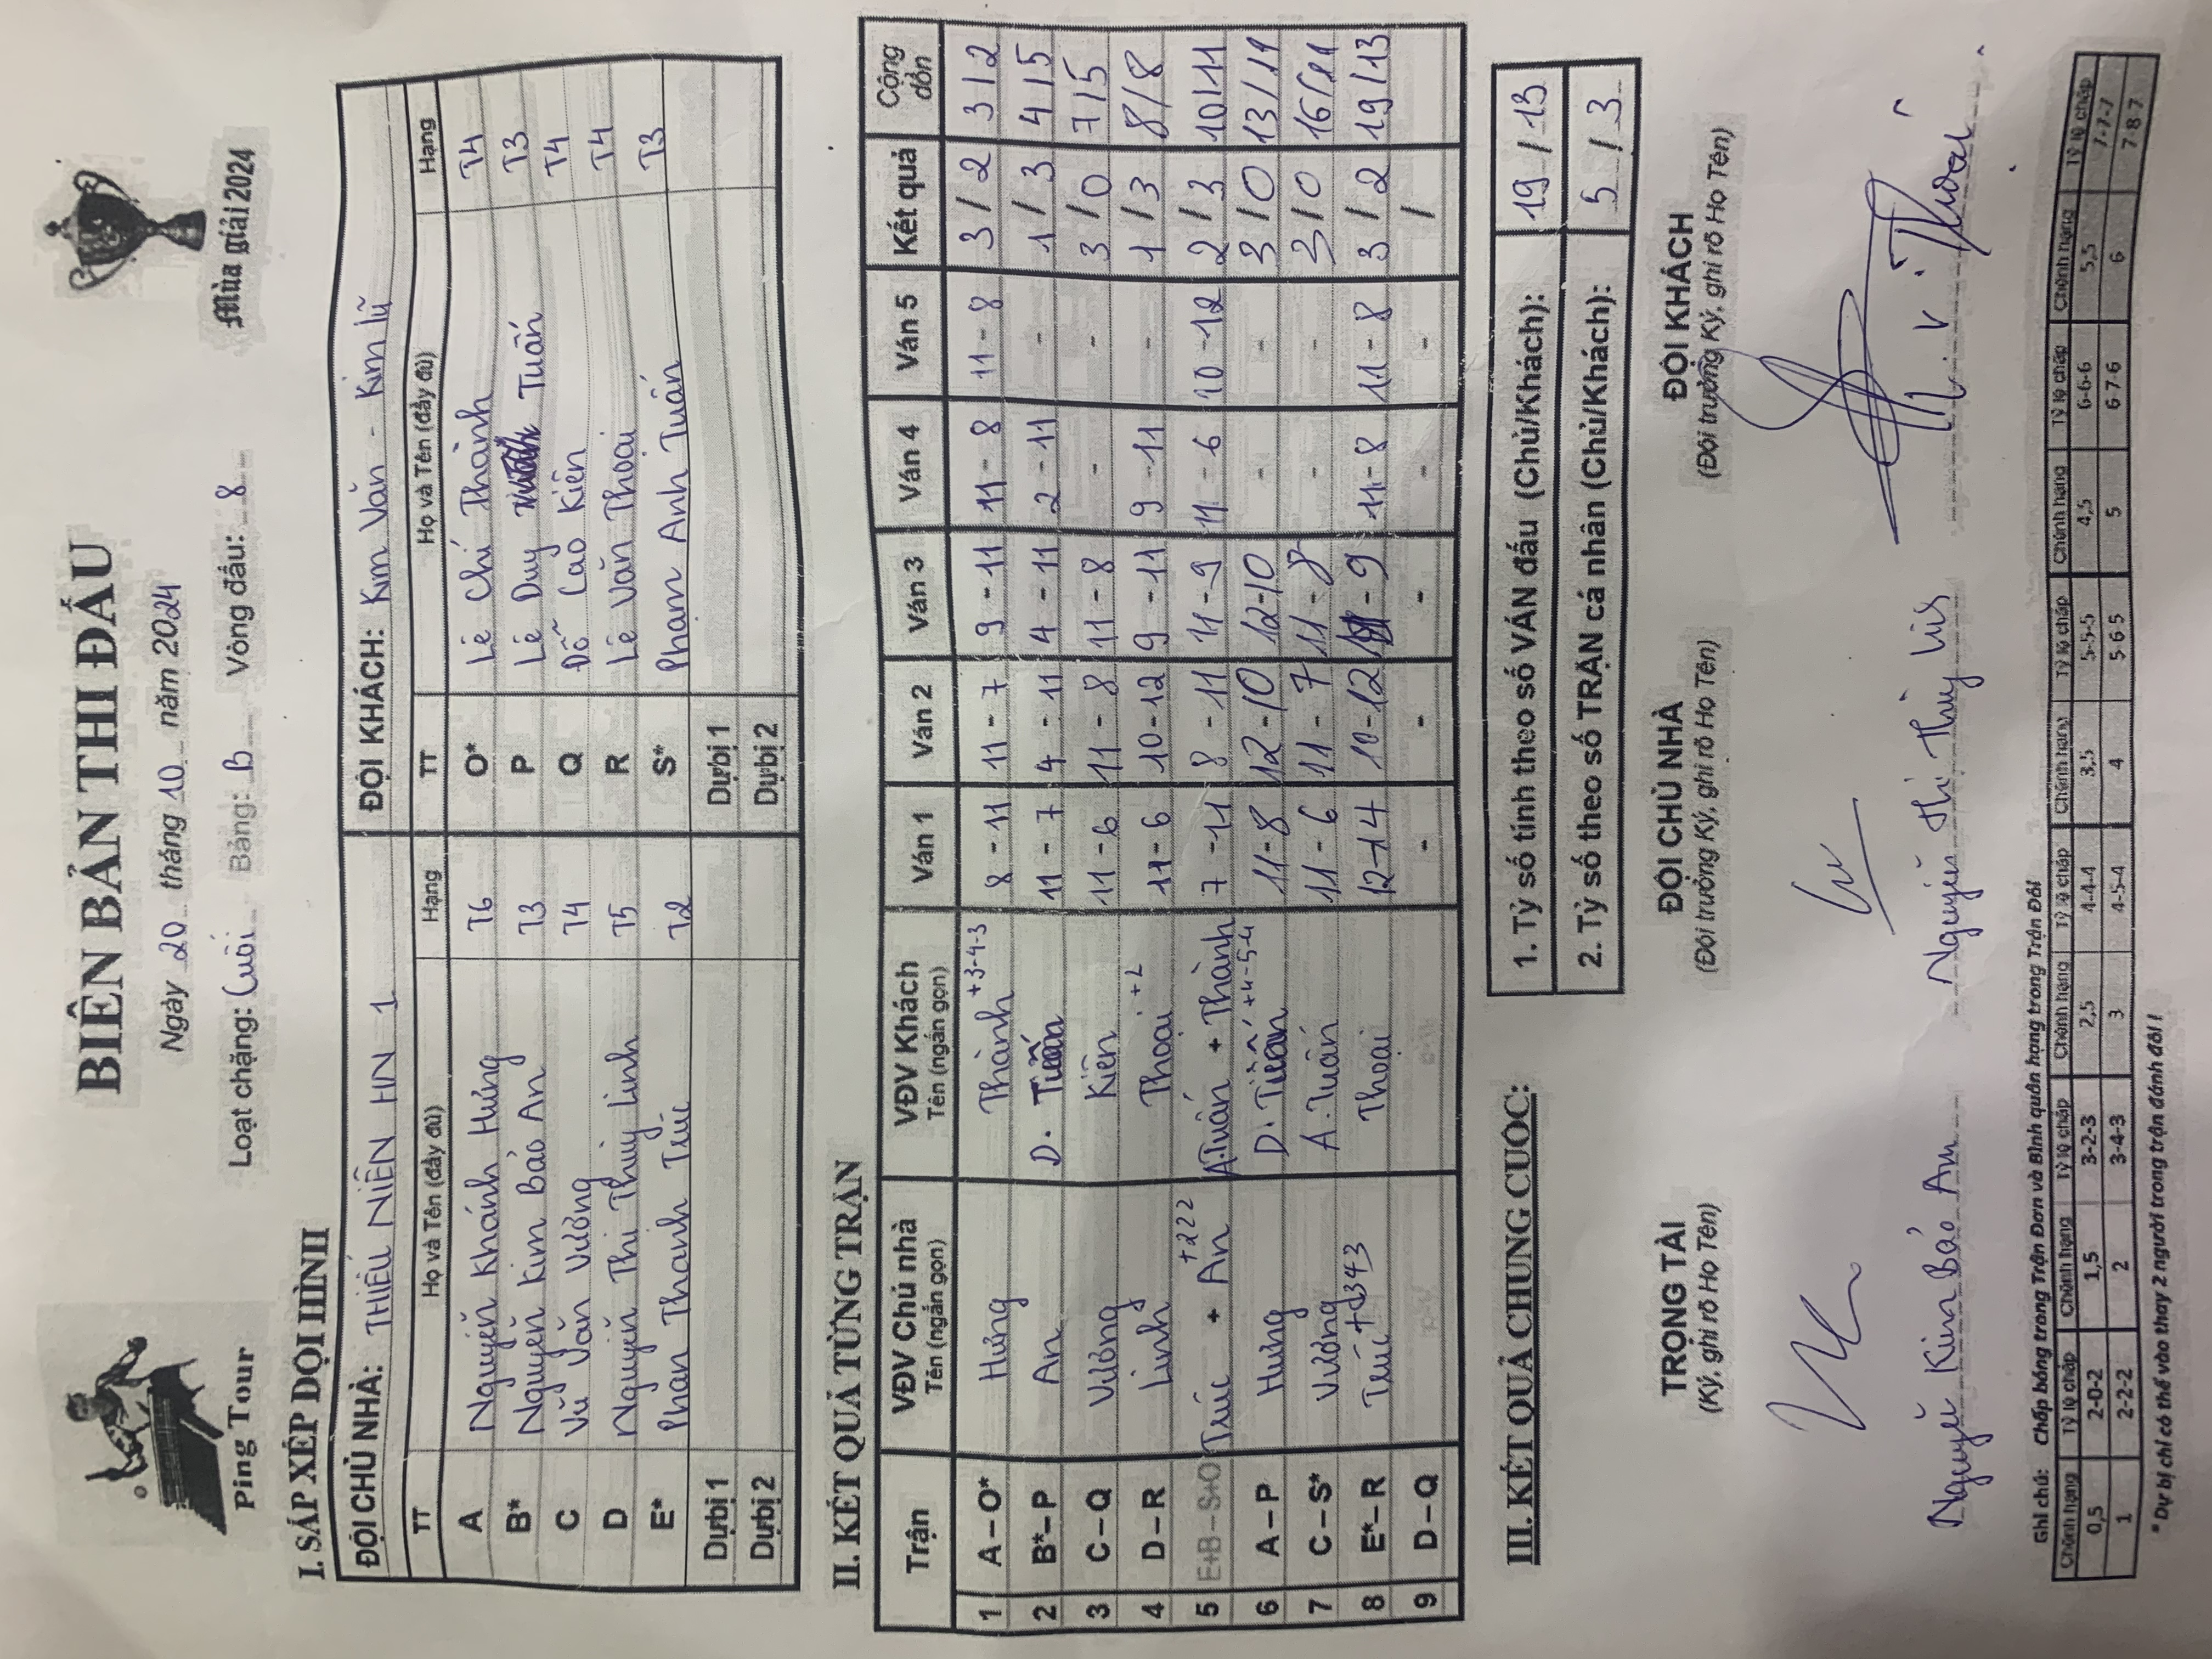 Ping Tour
BIÊN BẢN THI ĐẤU
Ngày 20 tháng 10 năm 2024
Loạt chặng: Cuối Bảng: B Vòng đấu: 8
Mùa giải 2024
I. SẮP XẾP ĐỘI HÌNH
ĐỘI CHỦ NHÀ: THIẾU NIÊN HN 1 ĐỘI KHÁCH: Kim Văn - Kim Lũ
TT Họ và Tên (đầy đủ) Hạng TT Họ và Tên (đầy đủ) Hạng
A Nguyễn Khánh Hưng T6 O* Lê Chí Thành T4
B* Nguyễn Kim Bảo An T3 P Lê Duy Tuấn T3
C Vũ Văn Vương T4 Q Đỗ Cao Kiên T4
D Nguyễn Thị Thuỳ Linh T5 R Lê Văn Thoại T4
E* Phan Thanh Trúc T2 S* Phạm Anh Tuấn T3
Dự bị 1 Dự bị 1
Dự bị 2 Dự bị 2
II. KẾT QUẢ TỪNG TRẬN
Trận VĐV Chủ nhà Tên (ngắn gọn) VĐV Khách Tên (ngắn gọn) Ván 1 Ván 2 Ván 3 Ván 4 Ván 5 Kết quả Cộng dồn
1 A – O* Hưng Thành +3-4-3 8 - 11 11 - 7 9 - 11 11 - 8 11 - 8 3 / 2 3 / 2
2 B* – P An D. Tuấn 11 - 7 4 - 11 4 - 11 2 - 11 - 1 / 3 4 / 5
3 C – Q Vương Kiên 11 - 6 11 - 8 11 - 8 - - 3 / 0 7 / 5
4 D – R Linh Thoại +2 11 - 6 10 - 12 9 - 11 9 - 11 - 1 / 3 8 / 8
5 E+B – S+O Trúc + An +222 A.Tuấn + Thành 7 - 11 8 - 11 11 - 9 11 - 6 10 - 12 2 / 3 10/11
6 A – P Hưng D. Tuấn +4-5-4 11 - 8 12 - 10 12-10 - - 3 / 0 13/11
7 C – S* Vương A. Tuấn 11 - 6 11 - 7 11 - 8 - - 3 / 0 16/11
8 E* – R Trúc +343 Thoại 12-14 10-12 11 - 9 11 - 8 11 - 8 3 / 2 19 / 13
9 D – Q - - - - - /
III. KẾT QUẢ CHUNG CUỘC:
1. Tỷ số tính theo số VÁN đấu (Chủ/Khách): 19 / 13
2. Tỷ số theo số TRẬN cá nhân (Chủ/Khách): 5 / 3
TRỌNG TÀI ĐỘI CHỦ NHÀ ĐỘI KHÁCH
(Ký, ghi rõ Họ Tên) (Đội trưởng Ký, ghi rõ Họ Tên) (Đội trưởng Ký, ghi rõ Họ Tên)
Nguyễn Kim Bảo An Nguyễn Thị Thùy
Ghi chú: Chấp bóng trong Trận Đơn và Bình quân hạng trong Trận Đôi
Chênh hạng Tỷ lệ chấp Chênh hạng Tỷ lệ chấp Chênh hạng Tỷ lệ chấp Chênh hạng Tỷ lệ chấp Chênh hạng Tỷ lệ chấp Chênh hạng Tỷ lệ chấp Chênh hạng Tỷ lệ chấp
0,5 2-0-2 1,5 3-2-3 2,5 4-4-4 3,5 5-5-5 4,5 6-6-6 5,5 7-7-7
1 2-2-2 2 3-4-3 3 4-5-4 4 5-6-5 5 6-7-6 6 7-8-7
* Dự bị chỉ có thể vào thay 2 người trong trận đánh đôi !